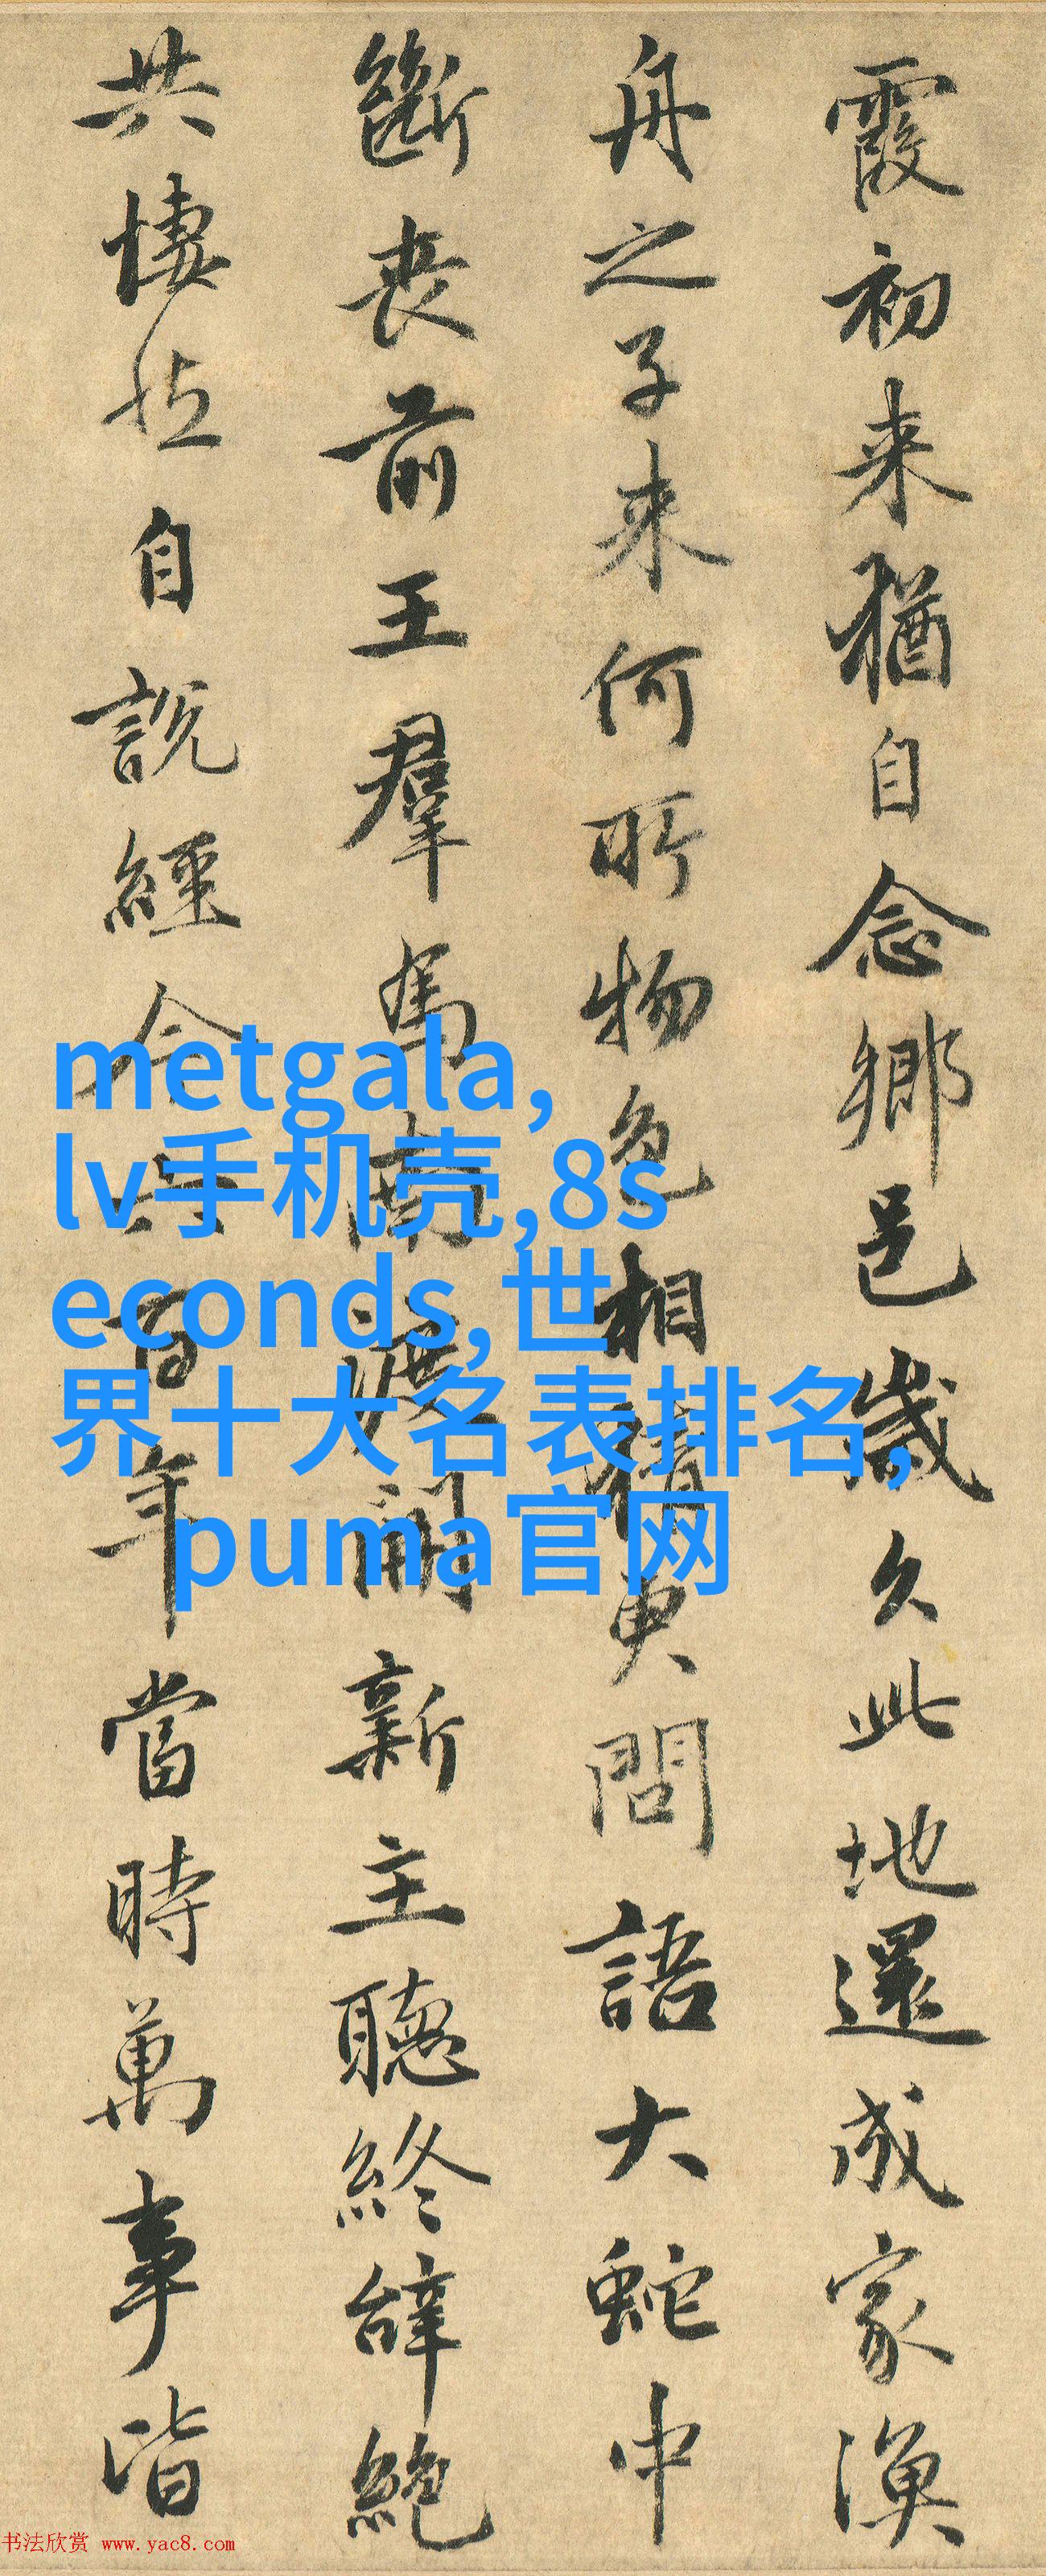 霞初来猶自念鄉邑歲久此地還成家漁
舟之子来何所物色相猜更問語大蛇中
斷喪前王羣馬南渡開新主聽終辭絕
共悽然自說經今六百年當時萬事皆
metgala,
lv手机壳,8s
econds,世
界十大名表排名,
puma官网
书法欣赏 www.yac8.com